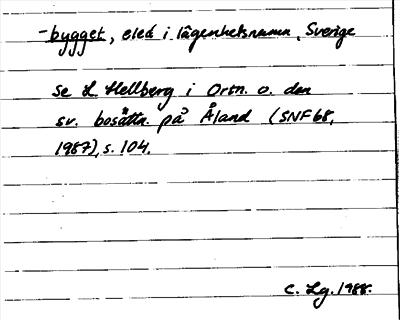 -bygget, eled i lägenhetsnamn, Sverige
se L. Hellberg i Ortn. o. den
sv. bosättn. på Åland (SNF 68,
1987), s. 104.
C. Lg. 1988.